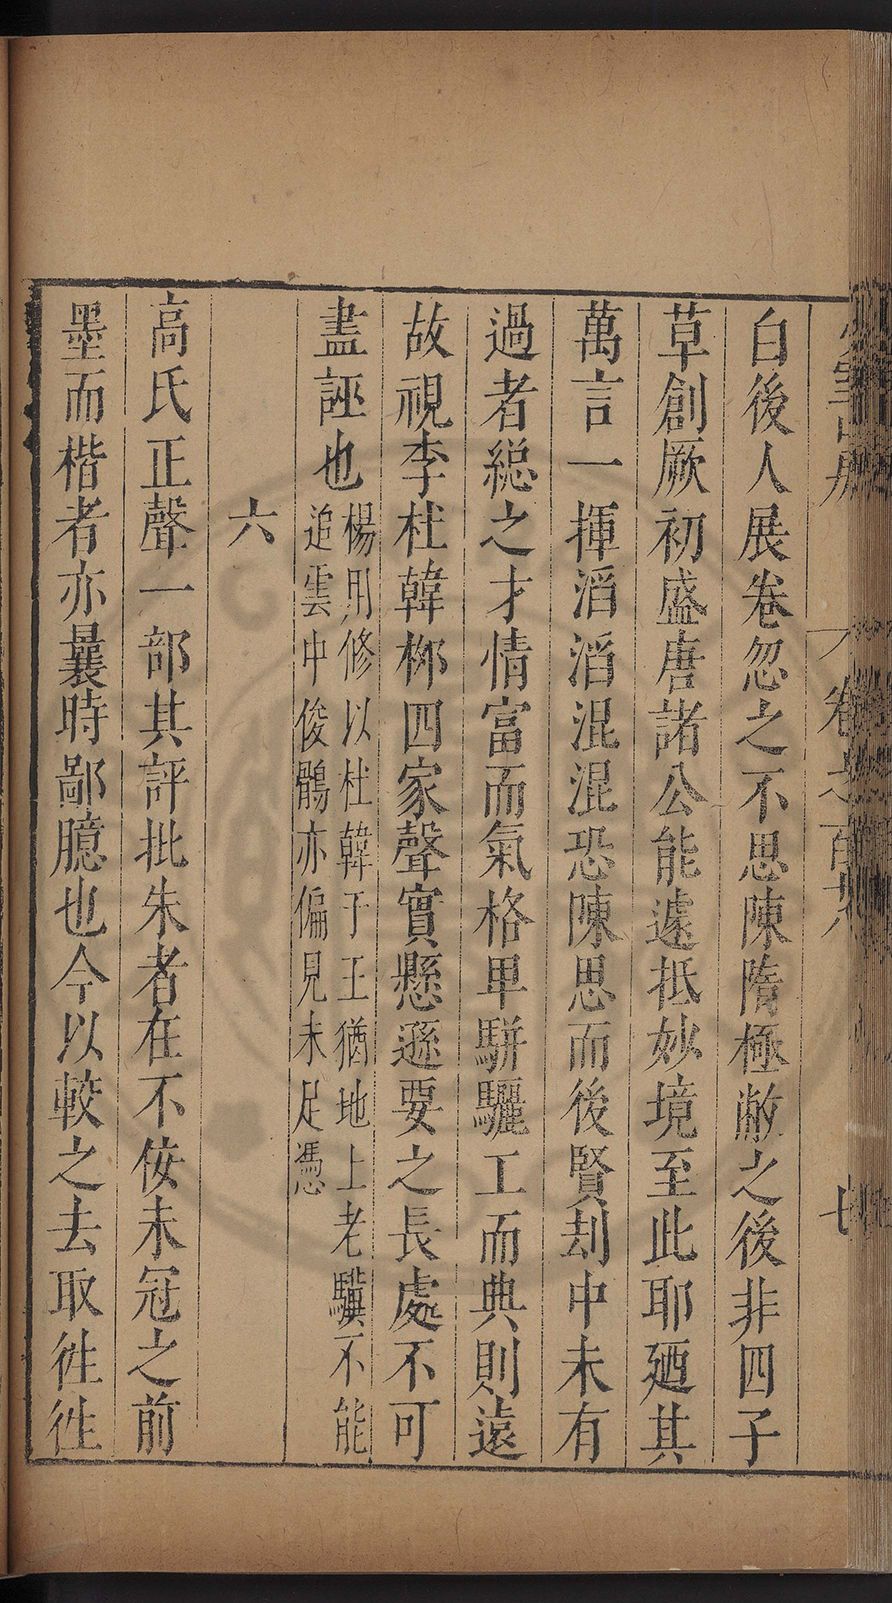 白後人展卷忽之不思陳隋極敝之後非四子
草創厥初盛唐諸公能遽抵妙境至此耶廼其
萬言一揮滔滔混混恐陳思而後賢刦中未有
過者緫之才情富而氣格卑駢驪工而典則遠
故視李杜韓栁四家聲實懸遜要之長處不可
盡誣也
楊用修以杜韓于王猶地上老驥不能
追雲中俊鶻亦偏見未足憑
六
高氏正聲一部其評批朱者在不佞未冠之前
墨而楷者亦曩時鄙臆也今以較之去取徃徃
卷之百六
七